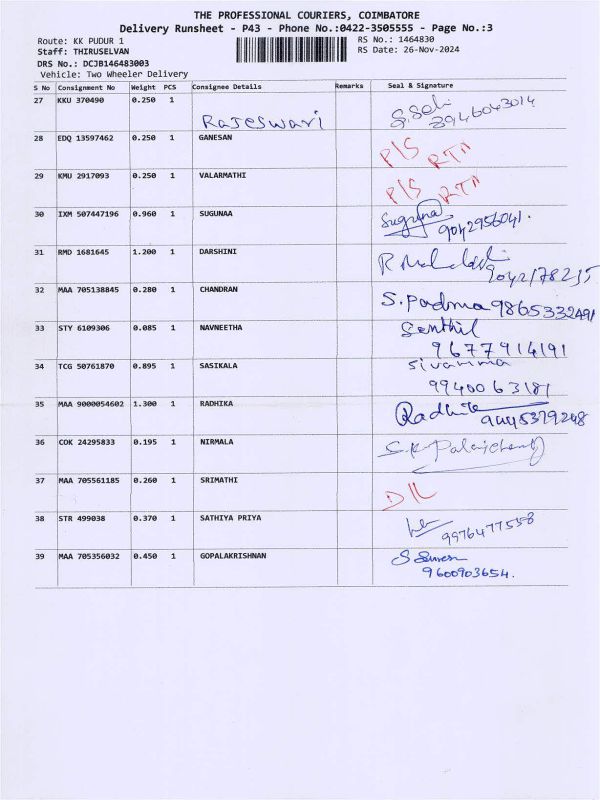 THE PROFESSIONAL COURIERS, COIMBATORE
Delivery Runsheet - P43 - Phone No.:0422-3505555 - Page No.:3
Route: KK PUDUR 1
RS No.: 1464830
Staff: THIRUSELVAN
RS Date: 26-Nov-2024
DRS No.: DCJB146483003
Vehicle: Two Wheeler Delivery
S No Consignment No Weight PCS Consignee Details Remarks Seal & Signature
27 KKU 370490 0.250 1 Rajeswari
28 EDQ 13597462 0.250 1 GANESAN P/S RTN
29 KMU 2917093 0.250 1 VALARMATHI P/S RTN
30 IXM 507447196 0.960 1 SUGUNAA Suguna
9042956041.
31 RMD 1681645 1.200 1 DARSHINI
9042178235
32 MAA 705138845 0.280 1 CHANDRAN S.Padma 9865332491
33 STY 6109306 0.085 1 NAVNEETHA Senthil
9677914191
34 TCG 50761870 0.895 1 SASIKALA Sivamma
9940063181
35 MAA 9000054602 1.300 1 RADHIKA Radhika
9445379248
36 COK 24295833 0.195 1 NIRMALA
37 MAA 705561185 0.260 1 SRIMATHI D/L
38 STR 499038 0.370 1 SATHIYA PRIYA
9976477558
39 MAA 705356032 0.450 1 GOPALAKRISHNAN
9600903654.